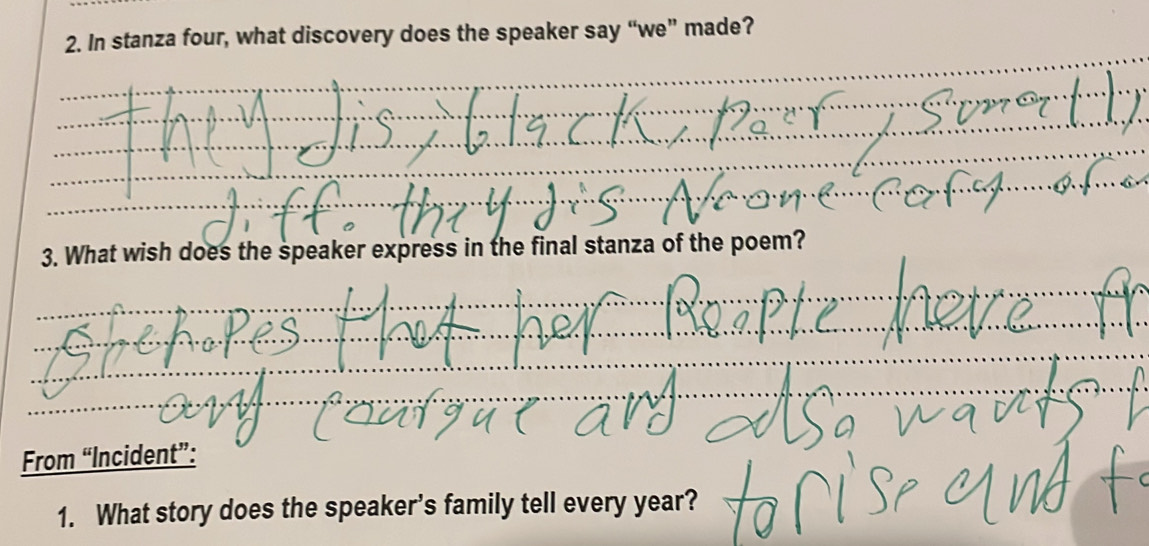 2. In stanza four, what discovery does the speaker say “we” made?
they dis, black, poor, small,
diff. they dis No one cary of a
3. What wish does the speaker express in the final stanza of the poem?
She hopes that her People heve
and courgue and also wants
From “Incident”:
1. What story does the speaker’s family tell every year?
to rise and